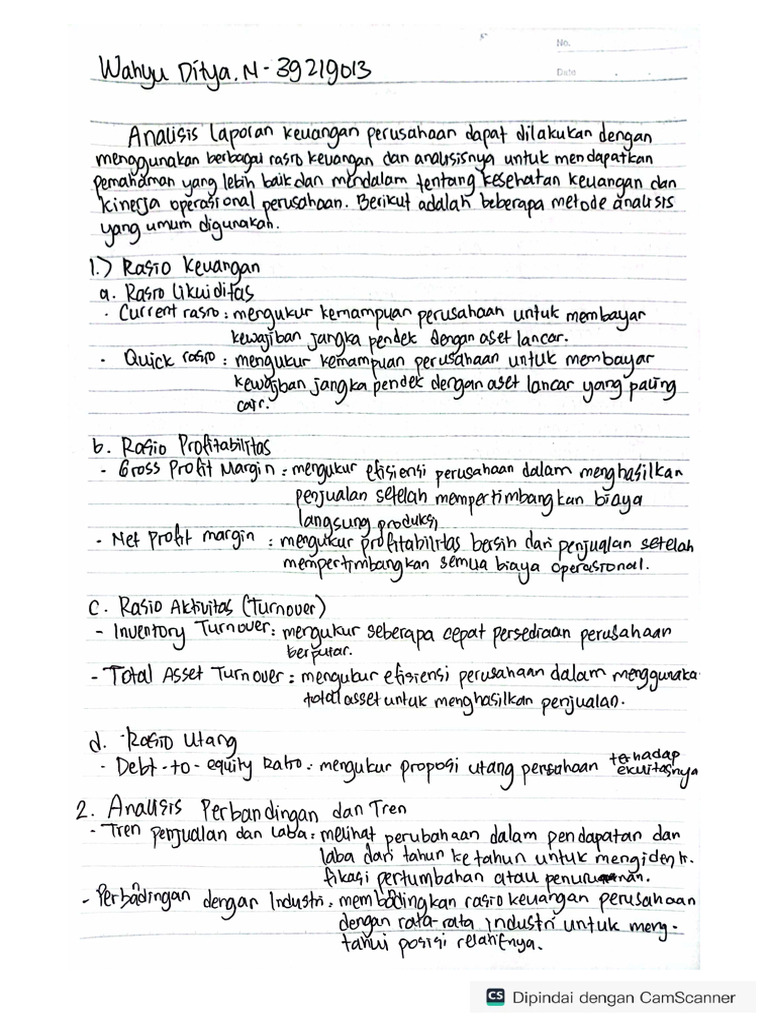 No.
Date
Wahyu Ditya.N - 39219013
Analisis laporan keuangan perusahaan dapat dilakukan dengan
menggunakan berbagai rasio keuangan dan analisisnya untuk mendapatkan
pemahaman yang lebih baik dan mendalam tentang kesehatan keuangan dan
kinerja operasional perusahaan. Berikut adalah beberapa metode analisis
yang umum digunakan.
1.) Rasio Keuangan
a. Rasio likuiditas
· Current rasio : mengukur kemampuan perusahaan untuk membayar
kewajiban jangka pendek dengan aset lancar.
· Quick rasio : mengukur kemampuan perusahaan untuk membayar
kewajiban jangka pendek dengan aset lancar yang paling
cair.
b. Rasio Profitabilitas
- Gross Profit Margin : mengukur efisiensi perusahaan dalam menghasilkan
penjualan setelah mempertimbangkan biaya
langsung produksi
- Net Profit margin : mengukur profitabilitas bersih dari penjualan setelah
mempertimbangkan semua biaya operasional.
c. Rasio Aktivitas (Turnover)
- Inventory Turnover : mengukur seberapa cepat persediaan perusahaan
berputar.
- Total Asset Turnover : mengukur efisiensi perusahaan dalam menggunaka
total asset untuk menghasilkan penjualan.
d. Rasio Utang
- Debt-to-equity Ratio : mengukur proposi utang perushaan terhadap
ekuitasnya
2. Analisis Perbandingan dan Tren
- Tren penjualan dan Laba : melihat perubahaan dalam pendapatan dan
laba dari tahun ke tahun untuk mengidenti-
fikasi pertumbahan atau penurunan.
- Perbadingan dengan Industri : membadingkan rasio keuangan perusahaan
dengan rata-rata industri untuk meng-
tahui posisi relatifnya.
CS Dipindai dengan CamScanner